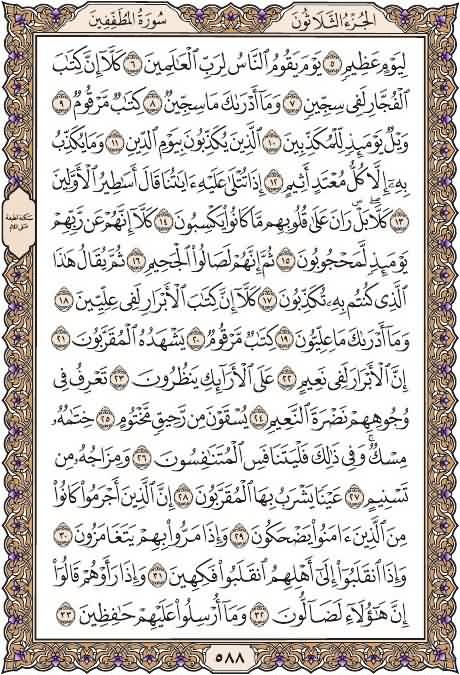 الجزء الثلاثون
سورة المطففين
لِيَوْمٍ عَظِيمٍ ٥ يَوْمَ يَقُومُ ٱلنَّاسُ لِرَبِّ ٱلْعَٰلَمِينَ ٦ كَلَّآ إِنَّ كِتَٰبَ
ٱلْفُجَّارِ لَفِى سِجِّينٍ ٧ وَمَآ أَدْرَىٰكَ مَا سِجِّينٌ ٨ كِتَٰبٌ مَّرْقُومٌ ٩
وَيْلٌ يَوْمَئِذٍ لِّلْمُكَذِّبِينَ ١٠ ٱلَّذِينَ يُكَذِّبُونَ بِيَوْمِ ٱلدِّينِ ١١ وَمَا يُكَذِّبُ
بِهِۦٓ إِلَّا كُلُّ مُعْتَدٍ أَثِيمٍ ١٢ إِذَا تُتْلَىٰ عَلَيْهِ ءَايَٰتُنَا قَالَ أَسَٰطِيرُ ٱلْأَوَّلِينَ
١٣ كَلَّا ۖ بَلْ ۜ رَانَ عَلَىٰ قُلُوبِهِم مَّا كَانُوا۟ يَكْسِبُونَ ١٤ كَلَّآ إِنَّهُمْ عَن رَّبِّهِمْ
يَوْمَئِذٍ لَّمَحْجُوبُونَ ١٥ ثُمَّ إِنَّهُمْ لَصَالُوا۟ ٱلْجَحِيمِ ١٦ ثُمَّ يُقَالُ هَٰذَا
ٱلَّذِى كُنتُم بِهِۦ تُكَذِّبُونَ ١٧ كَلَّآ إِنَّ كِتَٰبَ ٱلْأَبْرَارِ لَفِى عِلِّيِّينَ ١٨
وَمَآ أَدْرَىٰكَ مَا عِلِّيُّونَ ١٩ كِتَٰبٌ مَّرْقُومٌ ٢٠ يَشْهَدُهُ ٱلْمُقَرَّبُونَ ٢١
إِنَّ ٱلْأَبْرَارَ لَفِى نَعِيمٍ ٢٢ عَلَى ٱلْأَرَآئِكِ يَنظُرُونَ ٢٣ تَعْرِفُ فِى
وُجُوهِهِمْ نَضْرَةَ ٱلنَّعِيمِ ٢٤ يُسْقَوْنَ مِن رَّحِيقٍ مَّخْتُومٍ ٢٥ خِتَٰمُهُۥ
مِسْكٌ ۚ وَفِى ذَٰلِكَ فَلْيَتَنَافَسِ ٱلْمُتَنَٰفِسُونَ ٢٦ وَمِزَاجُهُۥ مِن
تَسْنِيمٍ ٢٧ عَيْنًا يَشْرَبُ بِهَا ٱلْمُقَرَّبُونَ ٢٨ إِنَّ ٱلَّذِينَ أَجْرَمُوا۟ كَانُوا۟
مِنَ ٱلَّذِينَ ءَامَنُوا۟ يَضْحَكُونَ ٢٩ وَإِذَا مَرُّوا۟ بِهِمْ يَتَغَامَزُونَ ٣٠
وَإِذَا ٱنقَلَبُوٓا۟ إِلَىٰٓ أَهْلِهِمُ ٱنقَلَبُوا۟ فَكِهِينَ ٣١ وَإِذَا رَأَوْهُمْ قَالُوٓا۟
إِنَّ هَٰٓؤُلَآءِ لَضَآلُّونَ ٣٢ وَمَآ أُرْسِلُوا۟ عَلَيْهِمْ حَٰفِظِينَ ٣٣
٥٨٨